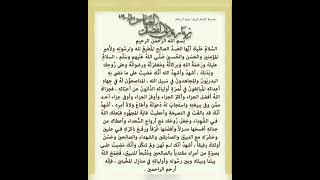 بسم الله الرحمن الرحيم
السلام عليك أيها العبد الصالح المطيع لله ولرسوله ولأمير
المؤمنين والحسن والحسين صلى الله عليهم وسلم ، السلام
عليك ورحمة الله وبركاته ومغفرته ورضوانه وعلى روحك
وبدنك ، أشهد وأشهد الله أنك مضيت على ما مضى به
البدريون والمجاهدون في سبيل الله ، المناصحون له في جهاد
أعدائه المبالغون في نصرة أوليائه الذابون عن أحبائه ، فجزاك
الله أفضل الجزاء وأكثر الجزاء وأوفر الجزاء وأوفى جزاء أحد
ممن وفى ببيعته واستجاب له دعوته وأطاع ولاة أمره ، أشهد
أنك قد بالغت في النصيحة وأعطيت غاية المجهود فبعثك الله
في الشهداء وجعل روحك مع أرواح السعداء وأعطاك من
جنانه أفسحها منزلا وأفضلها غرفا ورفع ذكرك في عليين
وحشرك مع النبيين والصديقين والشهداء والصالحين وحسن
أولئك رفيقا ، أشهد أنك لم تهن ولم تنكل وأنك مضيت على
بصيرة من أمرك مقتديا بالصالحين ومتبعا للنبيين ، فجمع الله
بيننا وبينك وبين رسوله وأوليائه في منازل المخبتين ، فإنه
أرحم الراحمين .